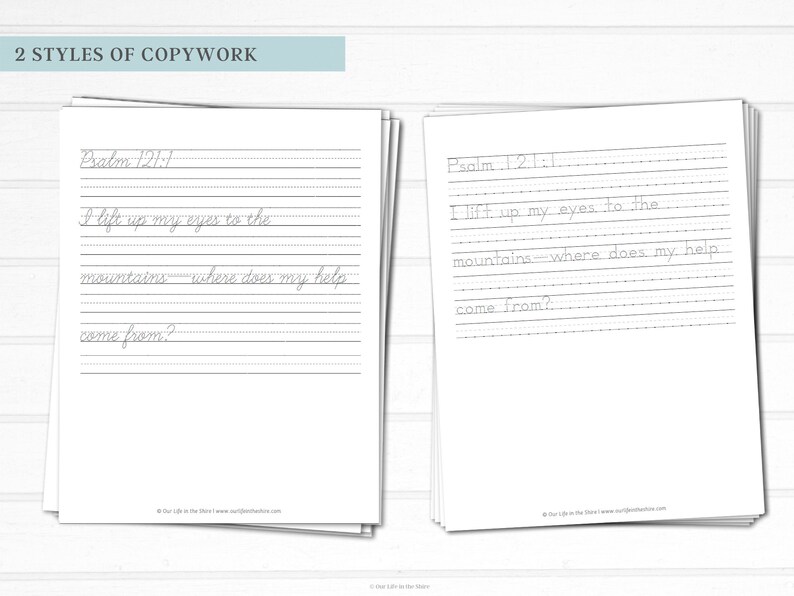 2 STYLES OF COPYWORK
Psalm 121:1
I lift up my eyes to the
mountains—where does my help
come from?
© Our Life in the Shire | www.ourlifeintheshire.com
Psalm 121:1
I lift up my eyes to the
mountains—where does my help
come from?
© Our Life in the Shire | www.ourlifeintheshire.com
© Our Life in the Shire